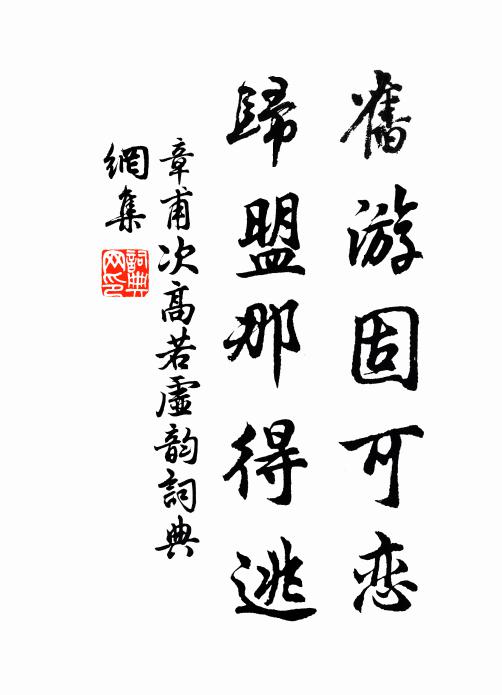 舊游固可恋
歸盟那得逃
章甫次高若虛韵詞典
網集
詞典網印